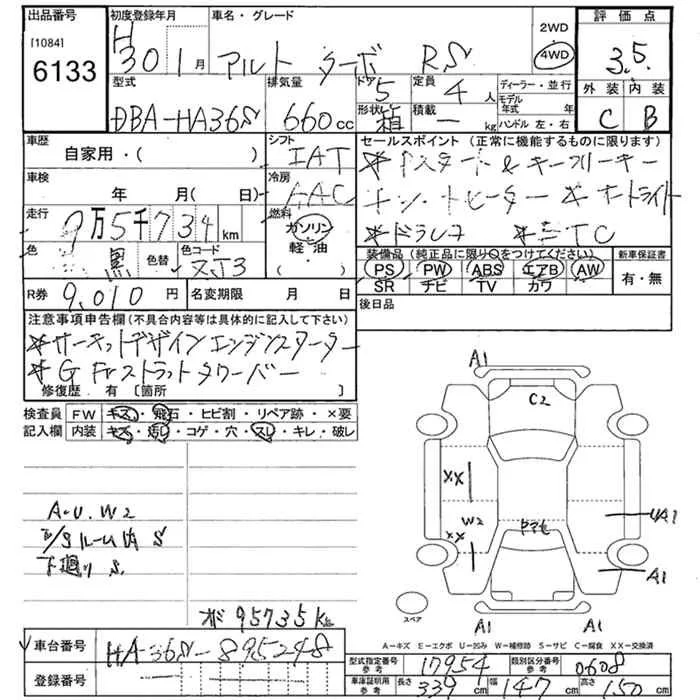 出品番号
[1084]
6133
初度登録年月
H
30 1月
車名・グレード
アルト ターボ RS
2WD
4WD
評価点
3.5
外装 内装
C B
型式
DBA-HA36S
排気量
660cc
ドア
5
形状
箱
定員
4人
積載
― kg
ディーラー・並行
モデル年式 年
ハンドル 左・右
車歴
自家用・( )
シフト
IAT
車検
年 月(日)
冷房
AAC
走行
9万5千734km
燃料
ガソリン
軽油
( )
色
黒
色替
色コード
ZJ3
R券
9,010円
名変期限 月 日
セールスポイント (正常に機能するものに限ります)
*ドラレコ *ETC
装備品(純正品に限り○をつけてください)
PS PW ABS エアB AW
SR ナビ TV カワ
新車保証書
有・無
後日品
注意事項申告欄(不具合内容等は具体的に記入して下さい)
*サーキットデザインエンジンスターター
*G Frストラットタワーバー
修復歴・有[箇所 ]
検査員記入欄
FW キズ・飛石・ヒビ割・リペア跡・×要
内装 キズ・汚れ・コゲ・穴・スレ・キレ・破レ
A・U.W2
ルーム内 S
下廻り S
メ 95735km
A1
C2
XX
W2
XX
UA1
A1
A1
A1
スペア
A-キズ E-エクボ U-凹み W-補修跡 S-サビ C-腐食 XX-交換済
車台番号
HA36S-895248
登録番号
型式指定番号 参考
17954
類別区分番号 参考
0608
車庫証明用 参考
長さ 339cm 幅 147cm 高さ 150cm